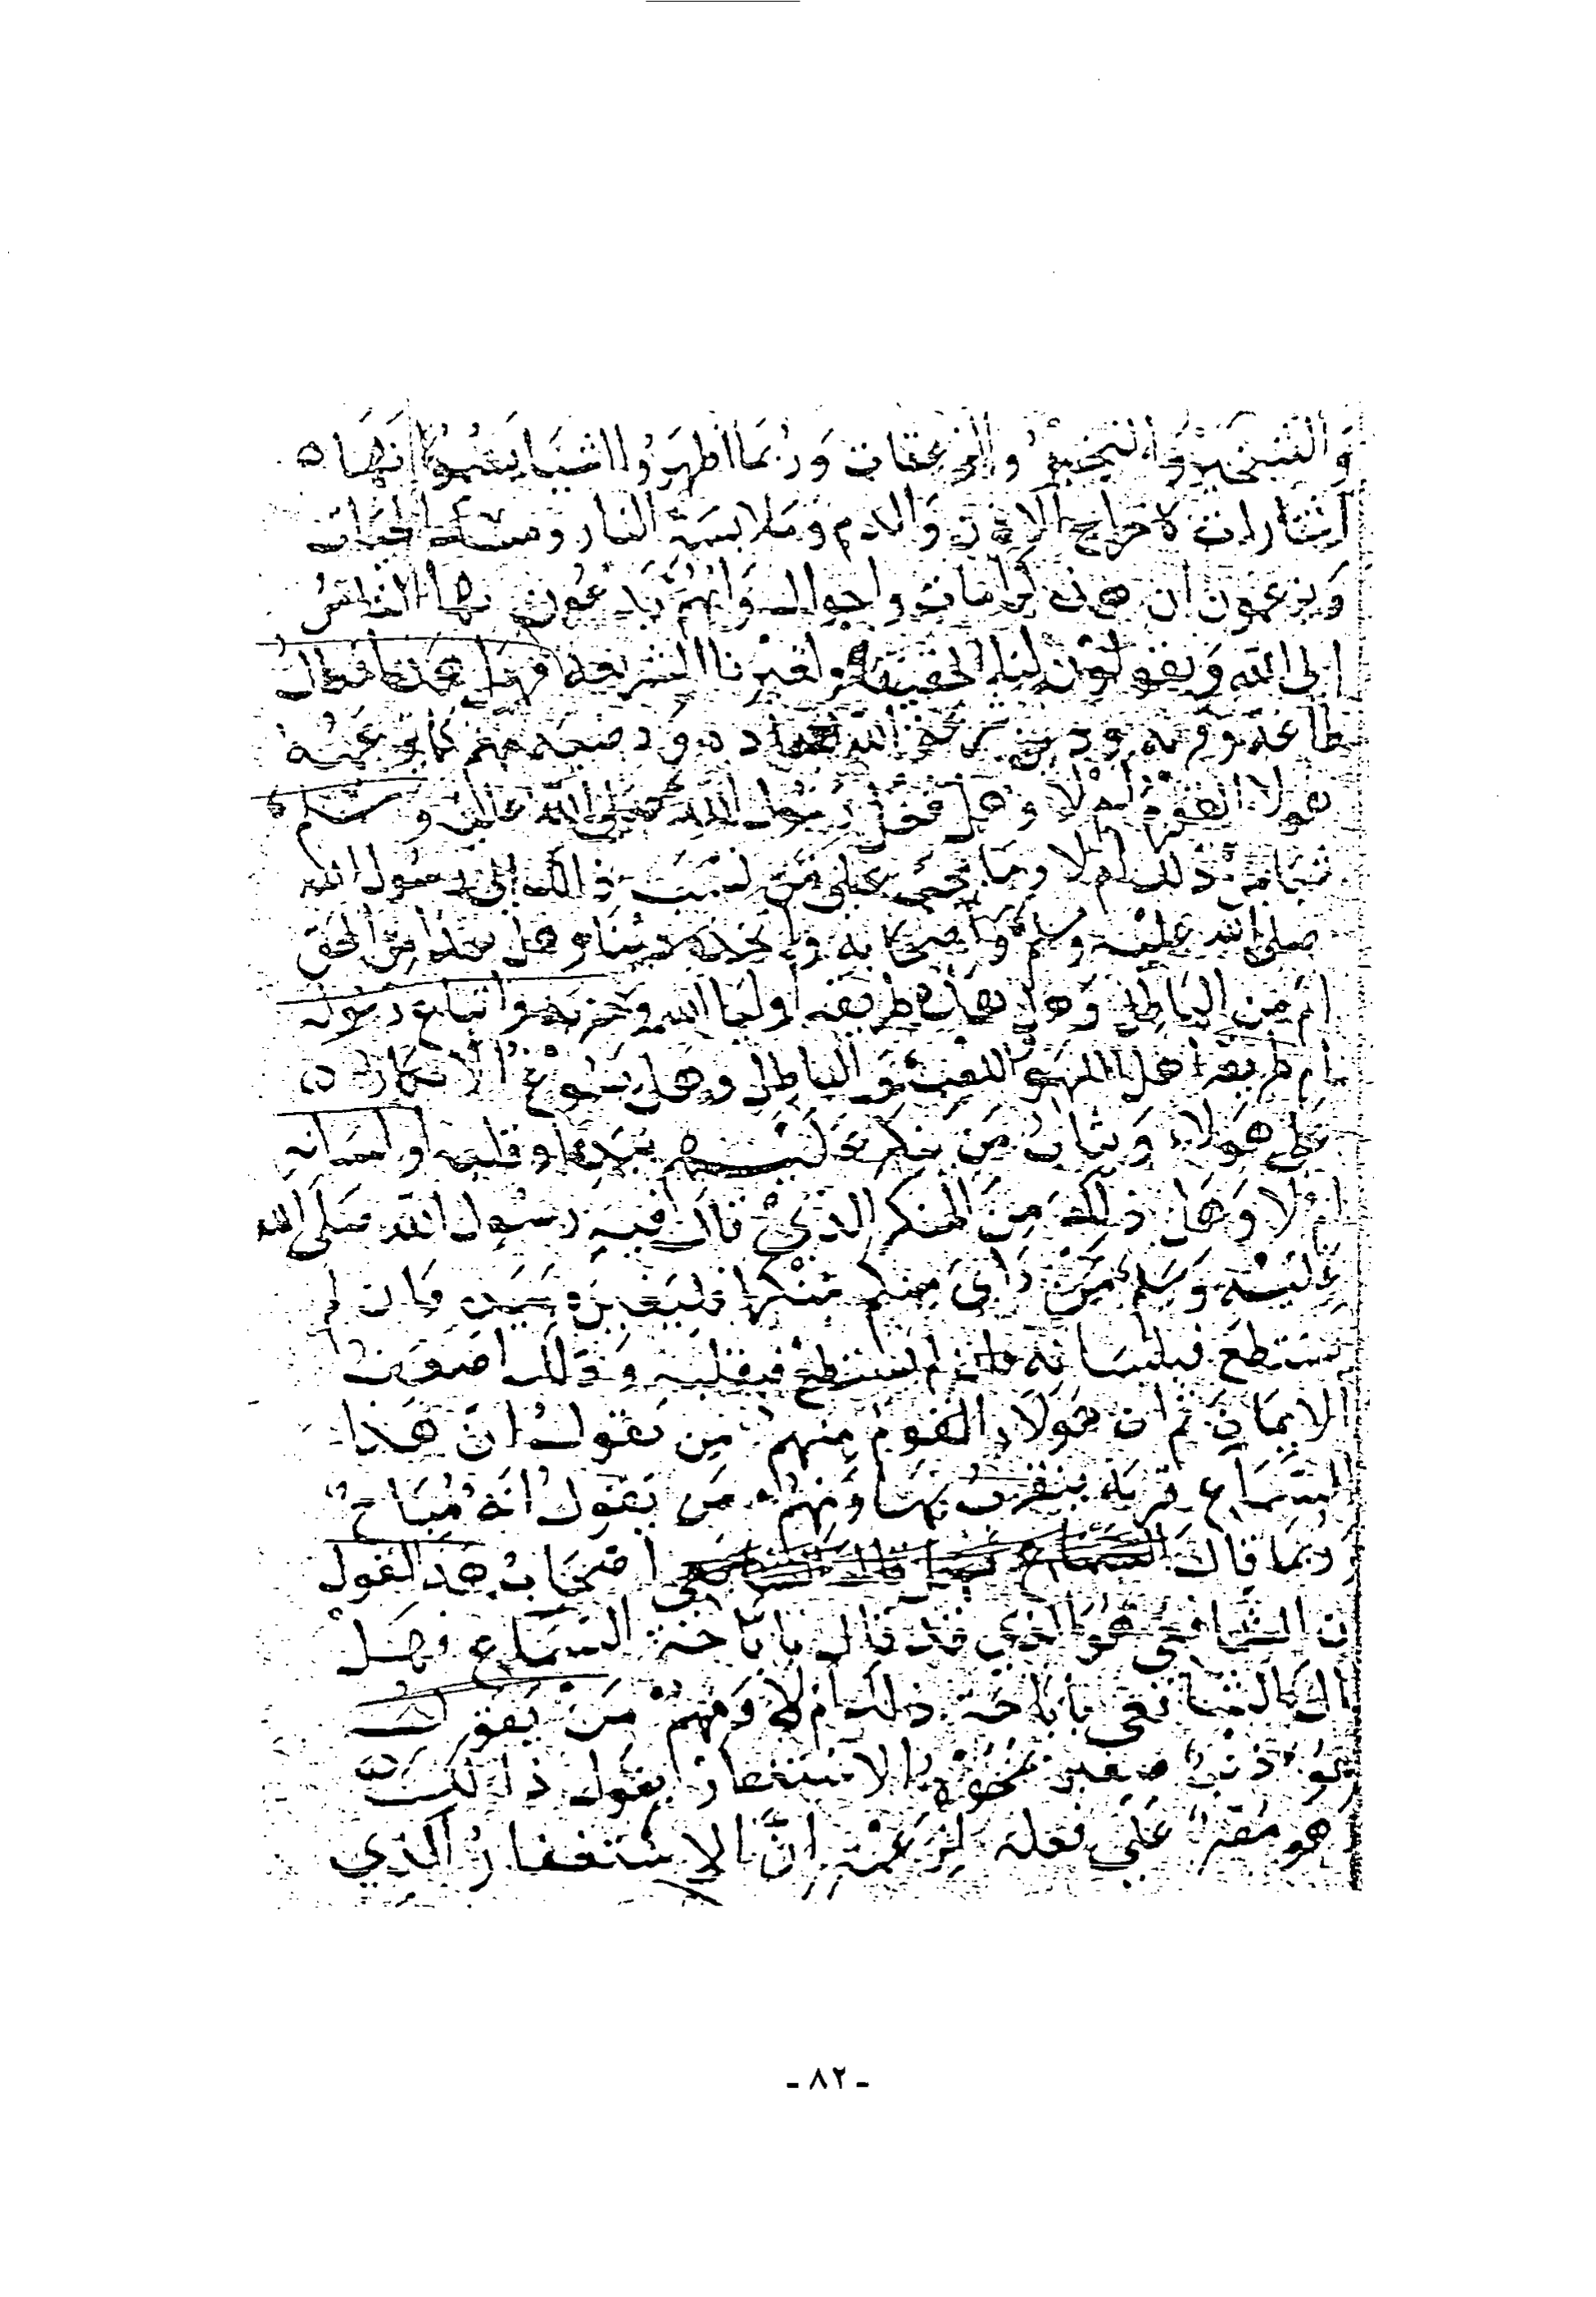 والشخير والنخير والزعقات وربما اظهروا اشيا يسموا نها
اشارات كاخراج الاذن والادم وملابسة النار ومسك الحيات
ويزعمون ان هذه كرامات واحوال وانهم يدعون بها الناس
الى الله ويقولون لنا الحقيقة ولغيرنا الشريعة فهل هذا
طاعة وقربة ودين شرعه الله لعباده
هولا القوم ام لا وهل فعل رسول الله صلى الله عليه وسلم
شيا من ذلك ام لا وما يجب على من نسب ذلك الى رسول الله
صلى الله عليه وسلم واصحابه وهل هذا من الحق
ام من الباطل وهل هذه طريقة اوليا الله وحزبه واتباع رسوله
ام طريقة اهل اللهو واللعب والباطل وهل يسوغ الانكار
على هولاء ويثاب من ينكر عليهم بيده او قلبه او لسانه
ام لا وهل ذلك من المنكر الذي قال فيه رسول الله صلى الله
عليه وسلم من راى منكم منكرا فليغيره بيده فان لم
يستطع فبلسانه فان لم يستطع فبقلبه وذلك اضعف
الايمان ثم ان هولاء القوم منهم من يقول ان هذا
السماع قربة يتقرب بها ومنهم من يقول انه مباح
وربما قال اصحاب هذ القول
ان الشافعي هو الذي قد قال باباحة السماع فهل
قال الشافعي باباحة ذلك ام لا ومنهم من يقول
هو ذنب صغير نمحوه بالاستغفار يقول ذلك
هو مصر على فعله لزعمه ان الاستغفار الذي
- ٨٢ -